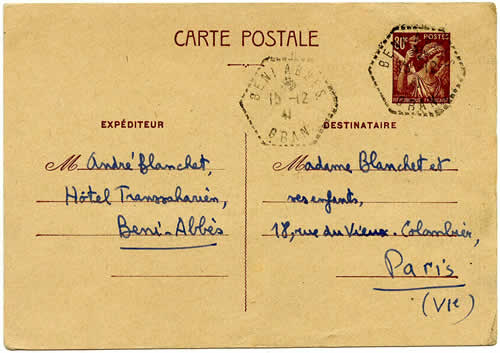 CARTE POSTALE
80c POSTES
BENI ABBÈS
15-12
41
ORAN
EXPÉDITEUR
M André Blanchet,
Hôtel Transsaharien,
Beni-Abbès
DESTINATAIRE
Madame Blanchet et
ses enfants,
18, rue du Vieux-Colombier,
Paris
(VIe)